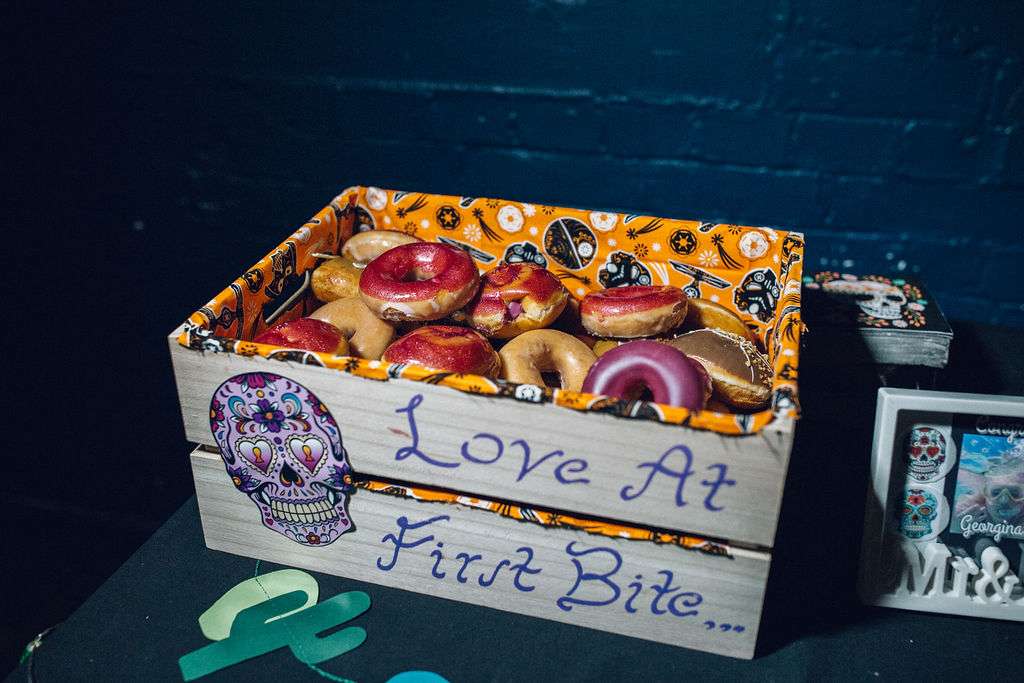 Love At
First Bite...
Georgina